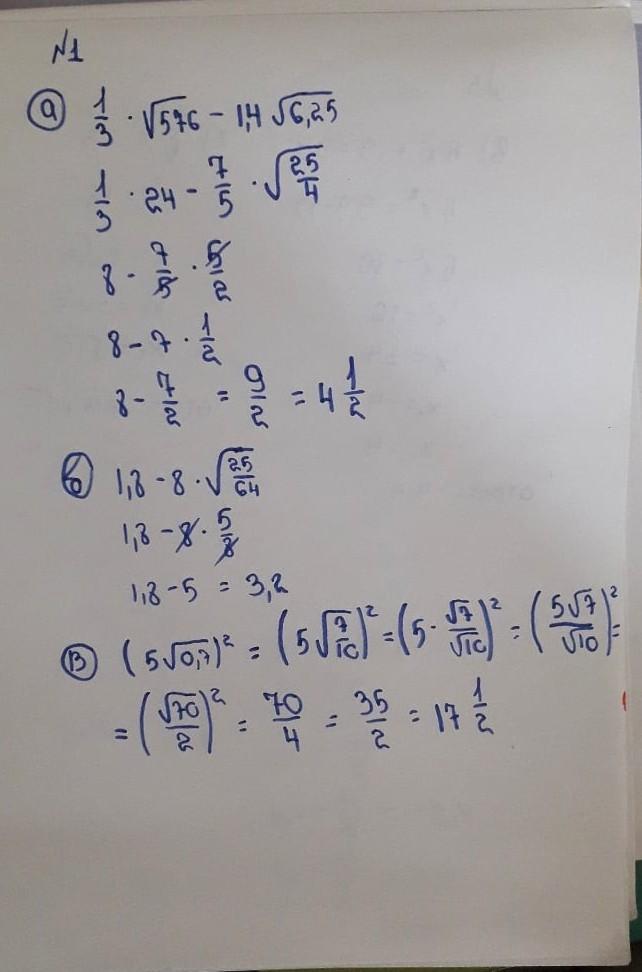 №1
а) 1/3 · √576 − 1,4 √6,25
1/3 · 24 − 7/5 · √(25/4)
8 − 7/5 · 5/2
8 − 7 · 1/2
8 − 7/2 = 9/2 = 4 1/2
б) 1,8 − 8 · √(25/64)
1,8 − 8 · 5/8
1,8 − 5 = 3,2
в) (5√0,7)² = (5√(7/10))² = (5 · √7/√10)² = (5√7/√10)² =
= (√70/2)² = 70/4 = 35/2 = 17 1/2